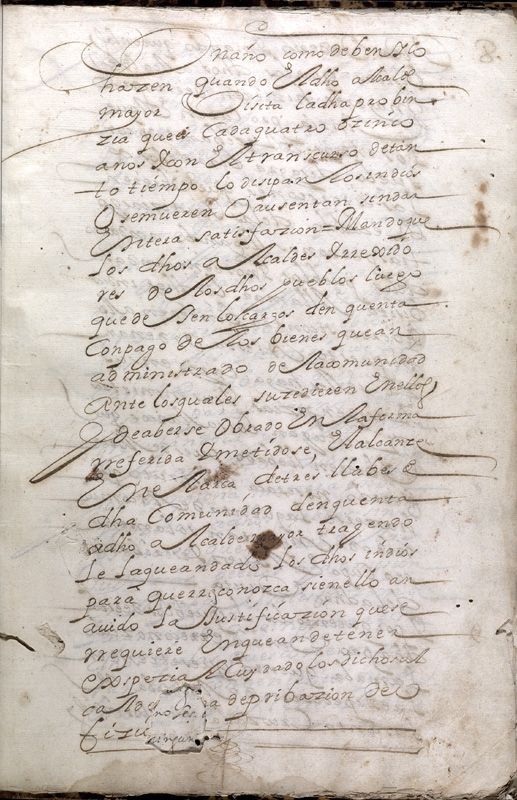 8
un año como deben y lo
hazen quando El dho alcalde
mayor Visita la dha probin
zia que es Cada quatro o zinco
años y con El transcurso de tan
to tiempo lo disipan los indios
o se mueren o ausentan sin dar
Entera satisfazion = Mando que
los dhos alcaldes y rrexido
res de los dhos pueblos luego
que dejen los cargos den quenta
Con pago de los bienes que an
administrado de la comunidad
Ante los quales suzedieren En ellos
de aberse obrado En la forma
rreferida y metidose El alcanze
En el arca de tres llabes de
dha Comunidad den quenta
a dho alcalde mor trayendo
le la que an dado los dhos indios
para que rreconozca si en ello an
auido la Justificazion que se
rrequiere En que an de tener
Espezial Cuydado los dichos al
cald pribazion de
fizi